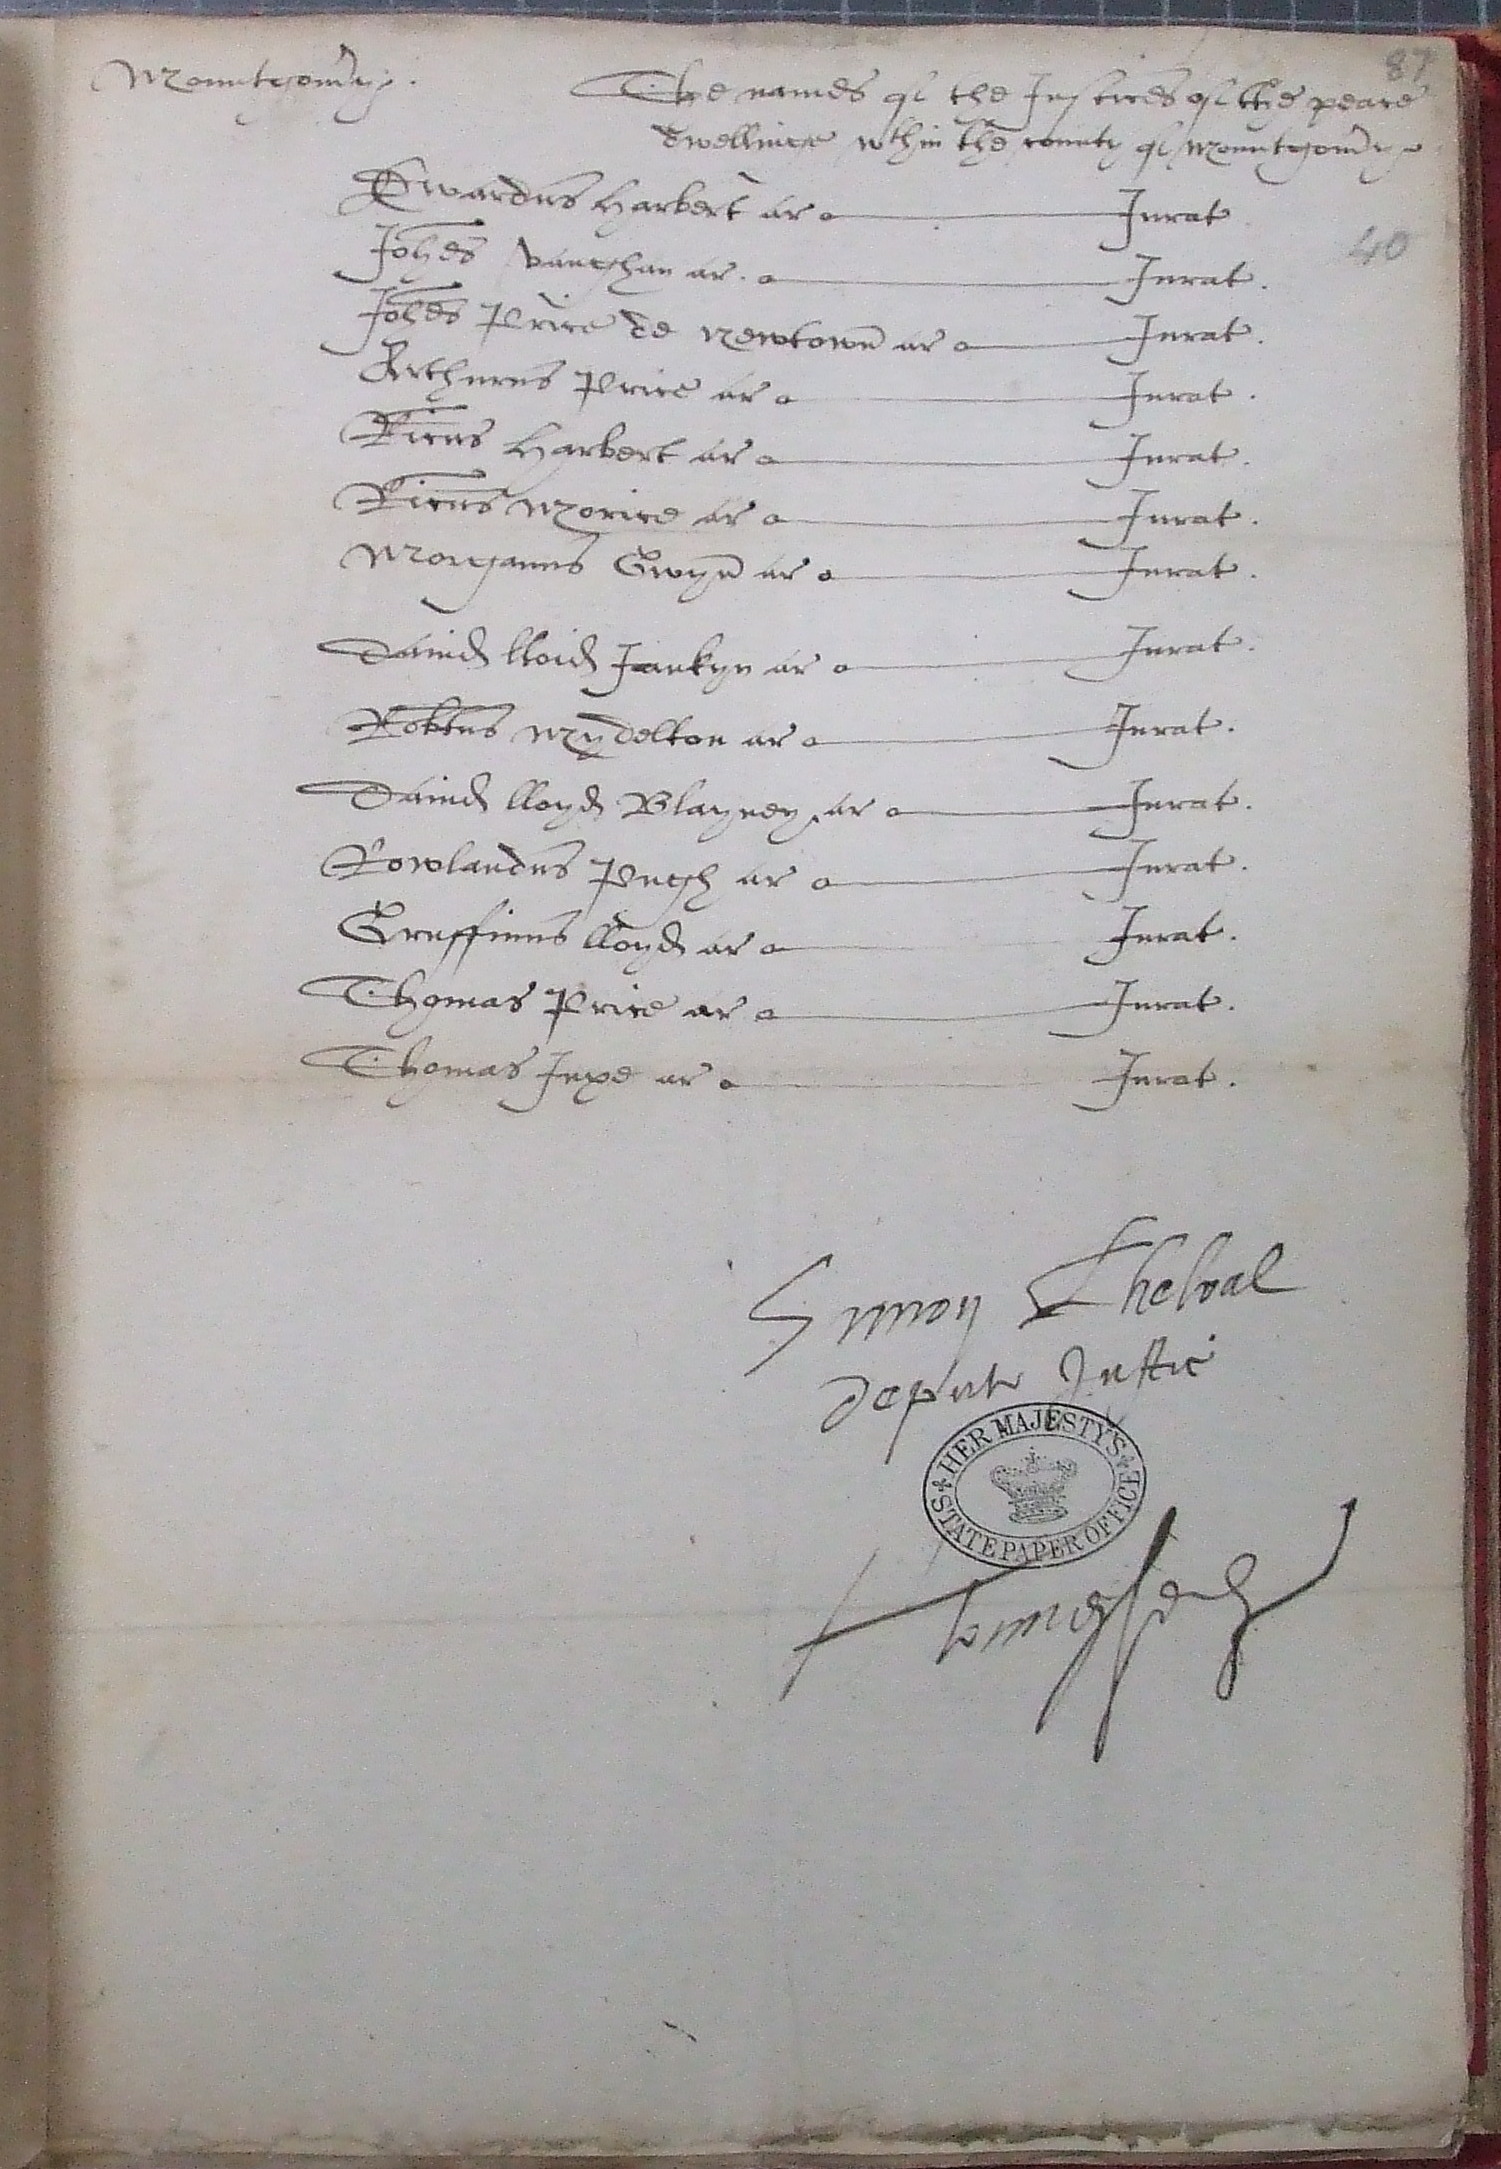 87
Mountgom'y.
The names of the Justices of the peace
dwellinge wthin the county of Mountgom'y
Edwardus Harbert ar Jurat
40
Johes Vaughan ar. Jurat.
Johes Price de Newtown ar Jurat.
Arthurus Price ar Jurat.
Ricus Harbert ar Jurat.
Ricus Morice ar Jurat.
Morganus Gwyn ar Jurat.
Dauid lloid Jankyn ar Jurat.
Robtus Mydelton ar Jurat.
Dauid lloyd Blayney ar Jurat.
Rowlandus Pugh ar Jurat.
Gruffinus lloyd ar Jurat.
Thomas Price ar Jurat.
Thomas Jupe ar Jurat.
Symon Thelwal
deputie Justic
HER MAJESTY'S STATE PAPER OFFICE